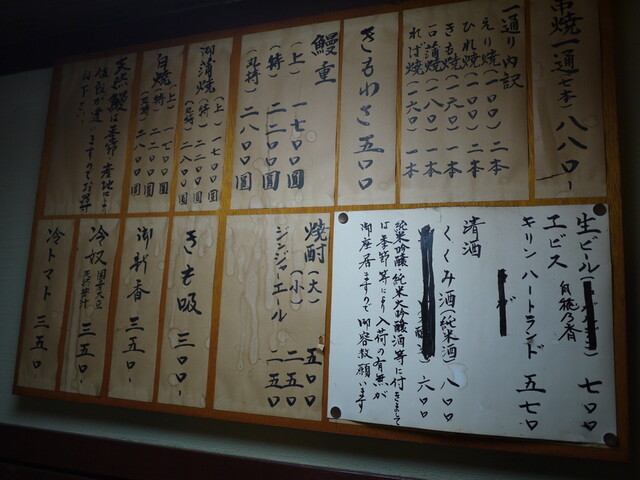 串焼一通七本 八八〇-
一通り内訳
えり焼(一〇〇)二本
ひれ焼(一〇〇)二本
きも焼(一六〇)一本
一口蒲焼(一八〇)一本
れば焼(一六〇)一本
きもわさ 五〇〇
鰻重
(上)一七〇〇圓
(特)二二〇〇圓
(丸特)二八〇〇圓
御蒲焼
(上)一七〇〇圓
(特)二二〇〇圓
(丸特)二八〇〇圓
白焼
(上)一七〇〇圓
(特)二二〇〇圓
(丸特)二八〇〇圓
天然鰻は季節・産地により
値段が違いますのでお尋
ね下さい
生ビール 七〇〇
エビス
キリンハートランド 五七〇
清酒
くくみ酒(純米酒)八〇〇
六〇〇
純米吟醸・純米大吟醸酒等に付きまして
は季節等により入荷の有無が
御座居ますので御容赦願います
焼酎(大)五〇〇
(小)二五〇
ジンジャーエール 二五〇
きも吸 三〇〇-
御新香 三五〇-
冷奴 三五〇-
冷トマト 三五〇-